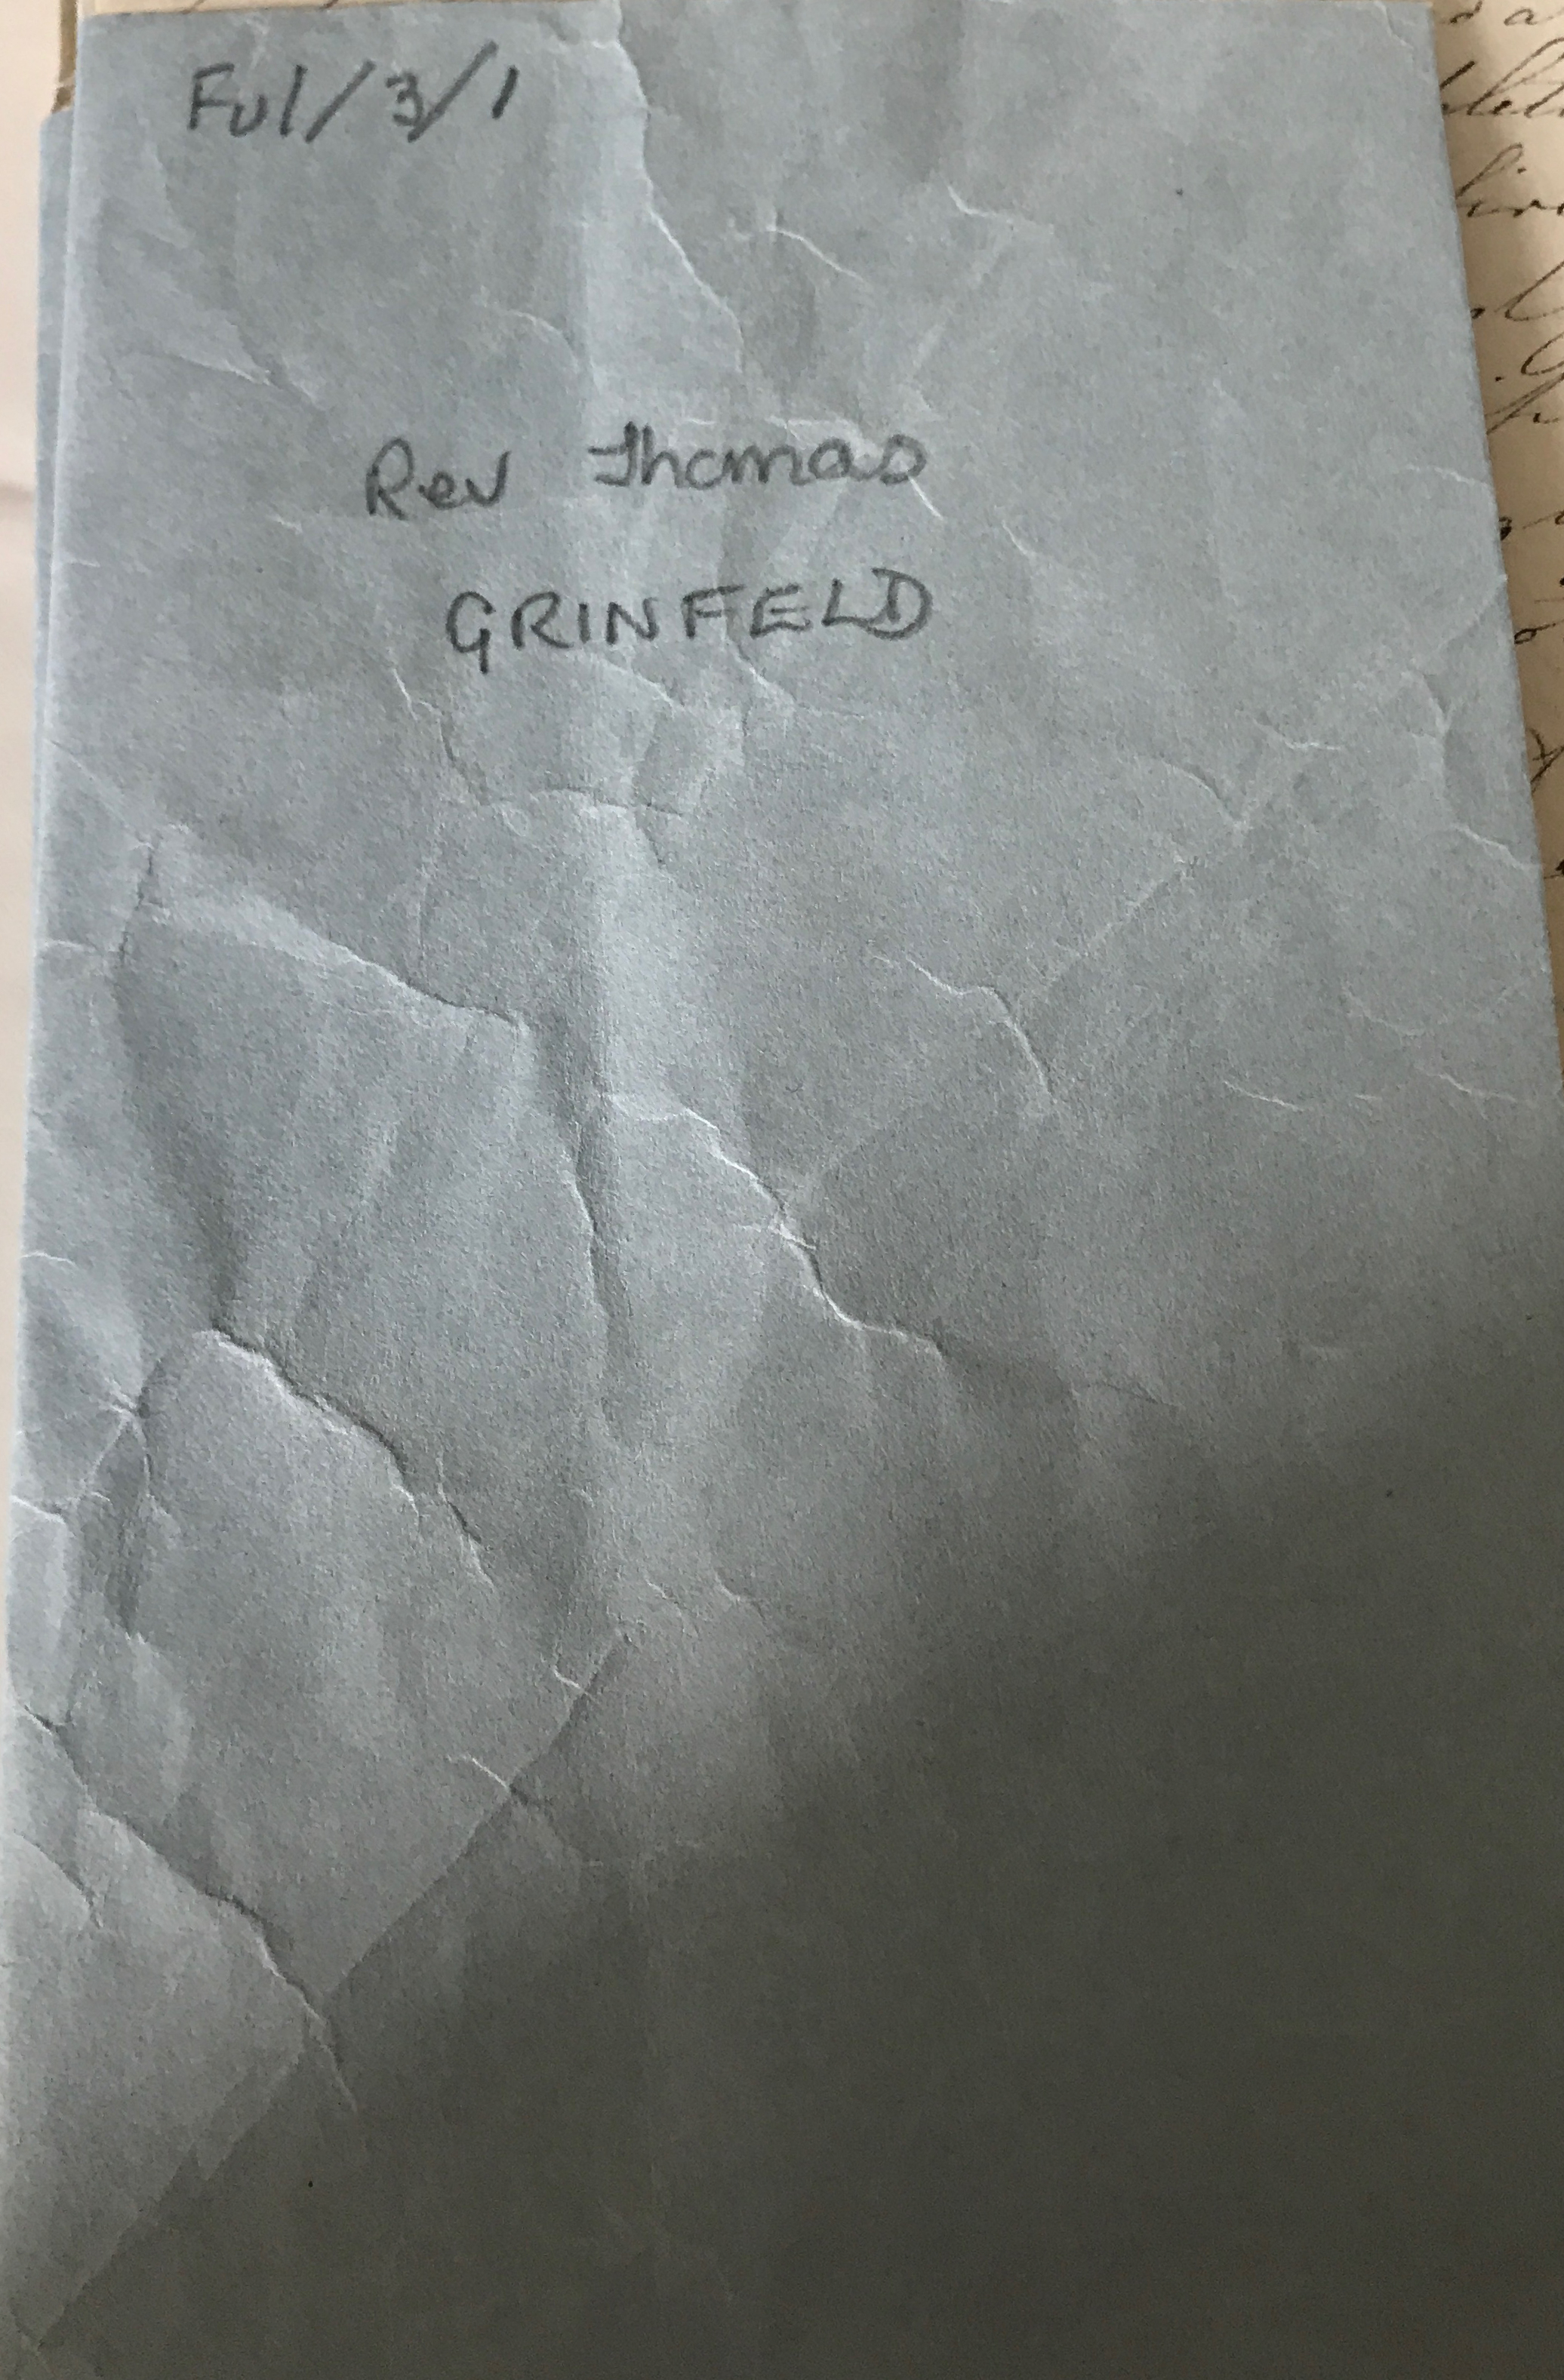 Ful/3/1
Rev Thomas
GRINFELD